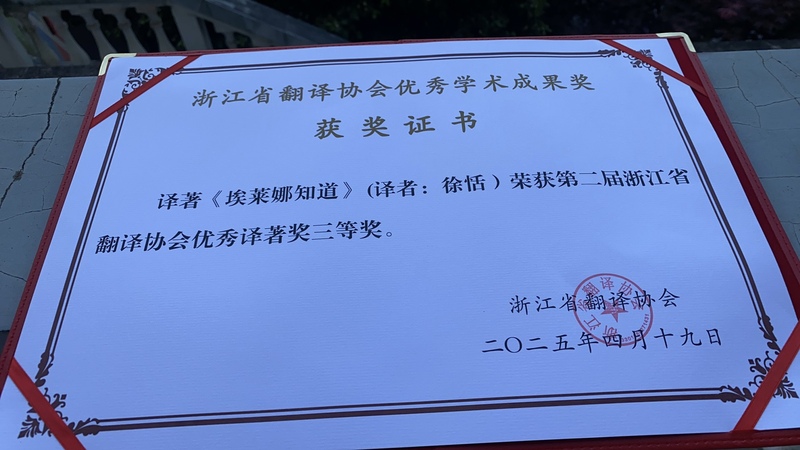 浙江省翻译协会优秀学术成果奖
获奖证书
译著《埃莱娜知道》(译者：徐恬）荣获第二届浙江省
翻译协会优秀译著奖三等奖。
浙江省翻译协会
二〇二五年四月十九日
浙江省翻译协会